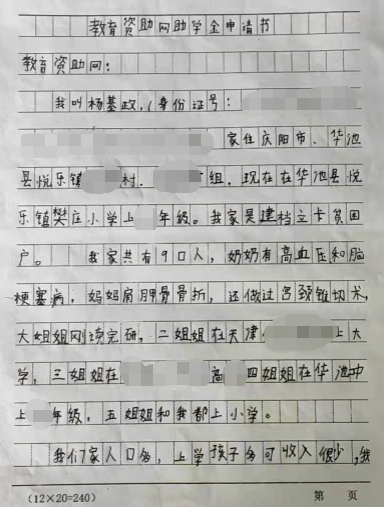 教育资助网助学金申请书
教育资助网：
我叫杨基政，（身份证号：
家住庆阳市、华池
县悦乐镇 村. 组．现在在华池县悦
乐镇樊庄小学上 年级。我家是建档立卡贫困
户。 我家共有9口人，奶奶有高血压和脑
梗塞病，妈妈肩胛骨骨折，还做过宫颈锥切术，
大姐姐刚读完研，二姐姐在天津 上大
学，三姐姐在 高 四姐姐在华池中
上 年级，五姐姐和我都上小学。
我们家人口多，上学孩子多可收入很少，我
（12×20=240） 第 页